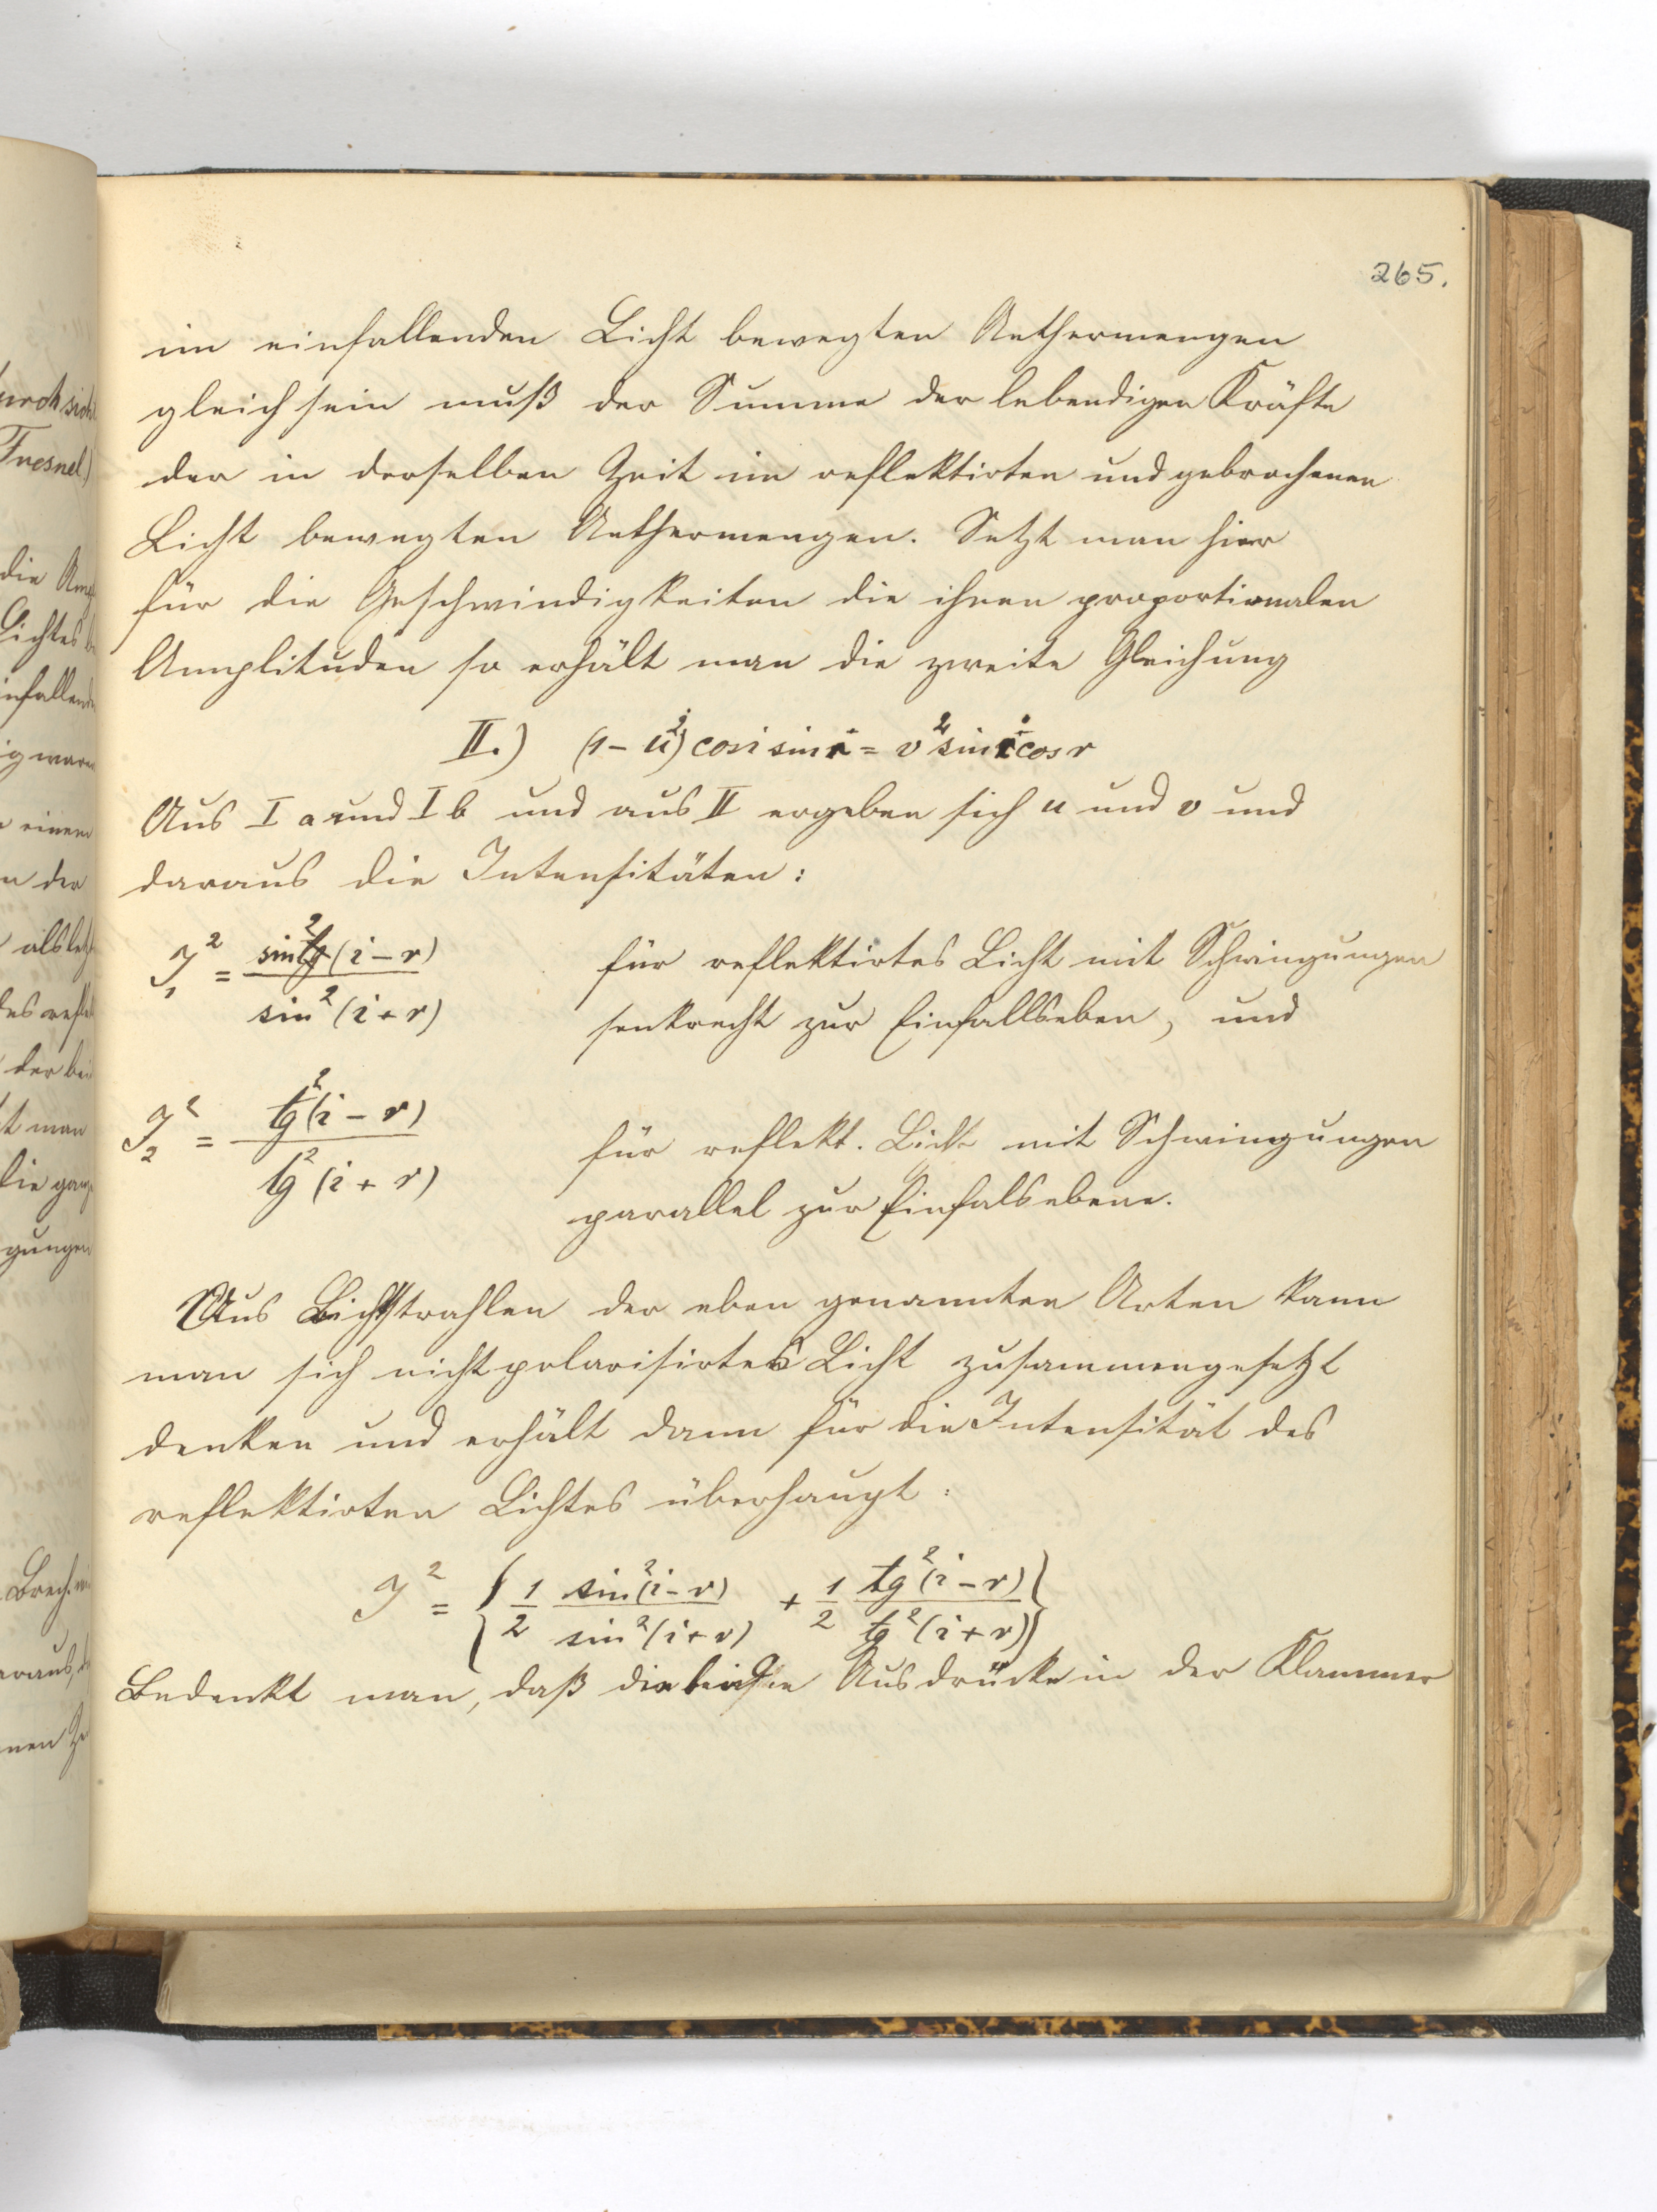 265.
im einfallenden Licht bewegten Aethermengen
gleich sein muß der Summe der lebendigen Kräfte
der in derselben Zeit im reflektirten und gebrochenen
Licht bewegten Aethermengen. Setzt man hier
für die Geschwindigkeiten die ihnen proportionalen
Amplituden so erhält man die zweite Gleichung
II.) (1 – u²) cos i sin r = v² sin i cos r
Aus I a und I b und aus II ergeben sich u und v und
daraus die Intensitäten:
J₁² = sin² (i – r) / sin² (i + r)
für reflektirtes Licht mit Schwingungen
senkrecht zur Einfallseben, und
J₂² = tg² (i – r) / tg² (i + r)
für reflekt. Licht mit Schwingungen
parallel zur Einfalsebene.
Aus Lichtstrahlen der eben genannten Arten kann
man sich nicht polarisirtes Licht zusammengesetzt
denken und erhält dann für die Intensität des
reflektirten Lichtes überhaupt:
J² = { 1/2 sin² (i – r) / sin² (i + r) + 1/2 tg² (i – r) / tg² (i + r) }
Bedenkt man, daß die beiden Ausdrücke in der Klammer
Fresnel)
die
Lichtes
einem
der
als
t man
die
gungen